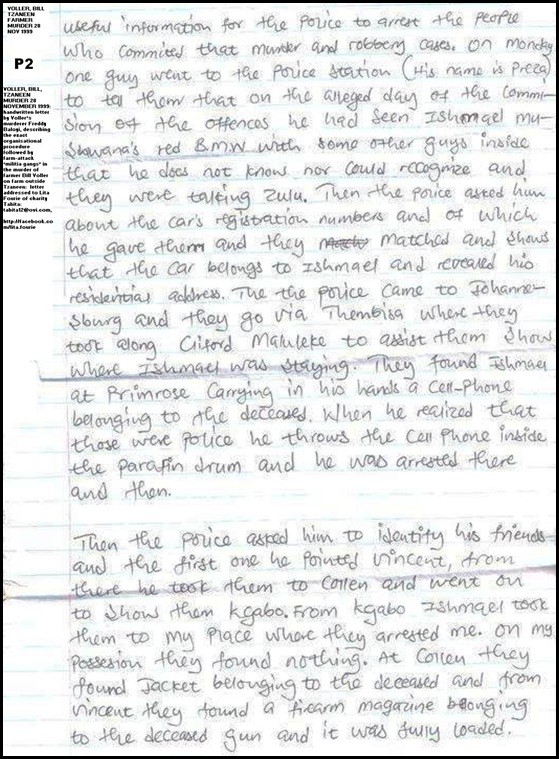 VOLLER, BILL
TZANEEN
FARMER
MURDER 28
NOV 1999
P2
VOLLER, BILL,
TZANEEN
MURDER 28
NOVEMBER 1999:
handwritten letter
by Voller's
murderer Freddy
Balogi, describing
the exact
organisational
procedure
followed by
farm-attack
"militia gangs" in
the murder of
farmer Bill Voller
on farm outside
Tzaneen: letter
addressed to Lita
Fourie of charity
Tabita:
tabita12@ovi.com,
http://facebook.co
m/lita.fourie
useful information for the Police to arrest the People
who commited that murder and robbery cases. On monday
one guy went to the Police station (His name is Preza)
to tell them that on the alleged day of the commi-
sion of the offences he had seen Ishmael mu-
Shwana's red BMW with some other guys inside
that he does not know nor could recognize and
they were talking Zulu. Then the police asked him
about the car's registration numbers and of which
he gave them and they matched and shows
that the car belongs to Ishmael and revealed his
residential address. The the police came to Johanne-
sburg and they go via Thembisa where they
took along Cliford Maluleke to assist them show
where Ishmael was staying. They found Ishmael
at Primrose Carrying in his hands a Cell-Phone
belonging to the deceased. When he realized that
those were police he throws the Cell Phone inside
the parafin drum and he was arrested there
and then.
Then the police asked him to identify his friends
and the first one he pointed Vincent, from
there he took them to Collen and went on
to show them Kgabo. From Kgabo Ishmael took
them to my Place where they arrested me. On my
Possesion they found nothing. At Collen they
found Jacket belonging to the deceased and from
Vincent they found a firearm magazine belonging
to the deceased gun and it was fully loaded.